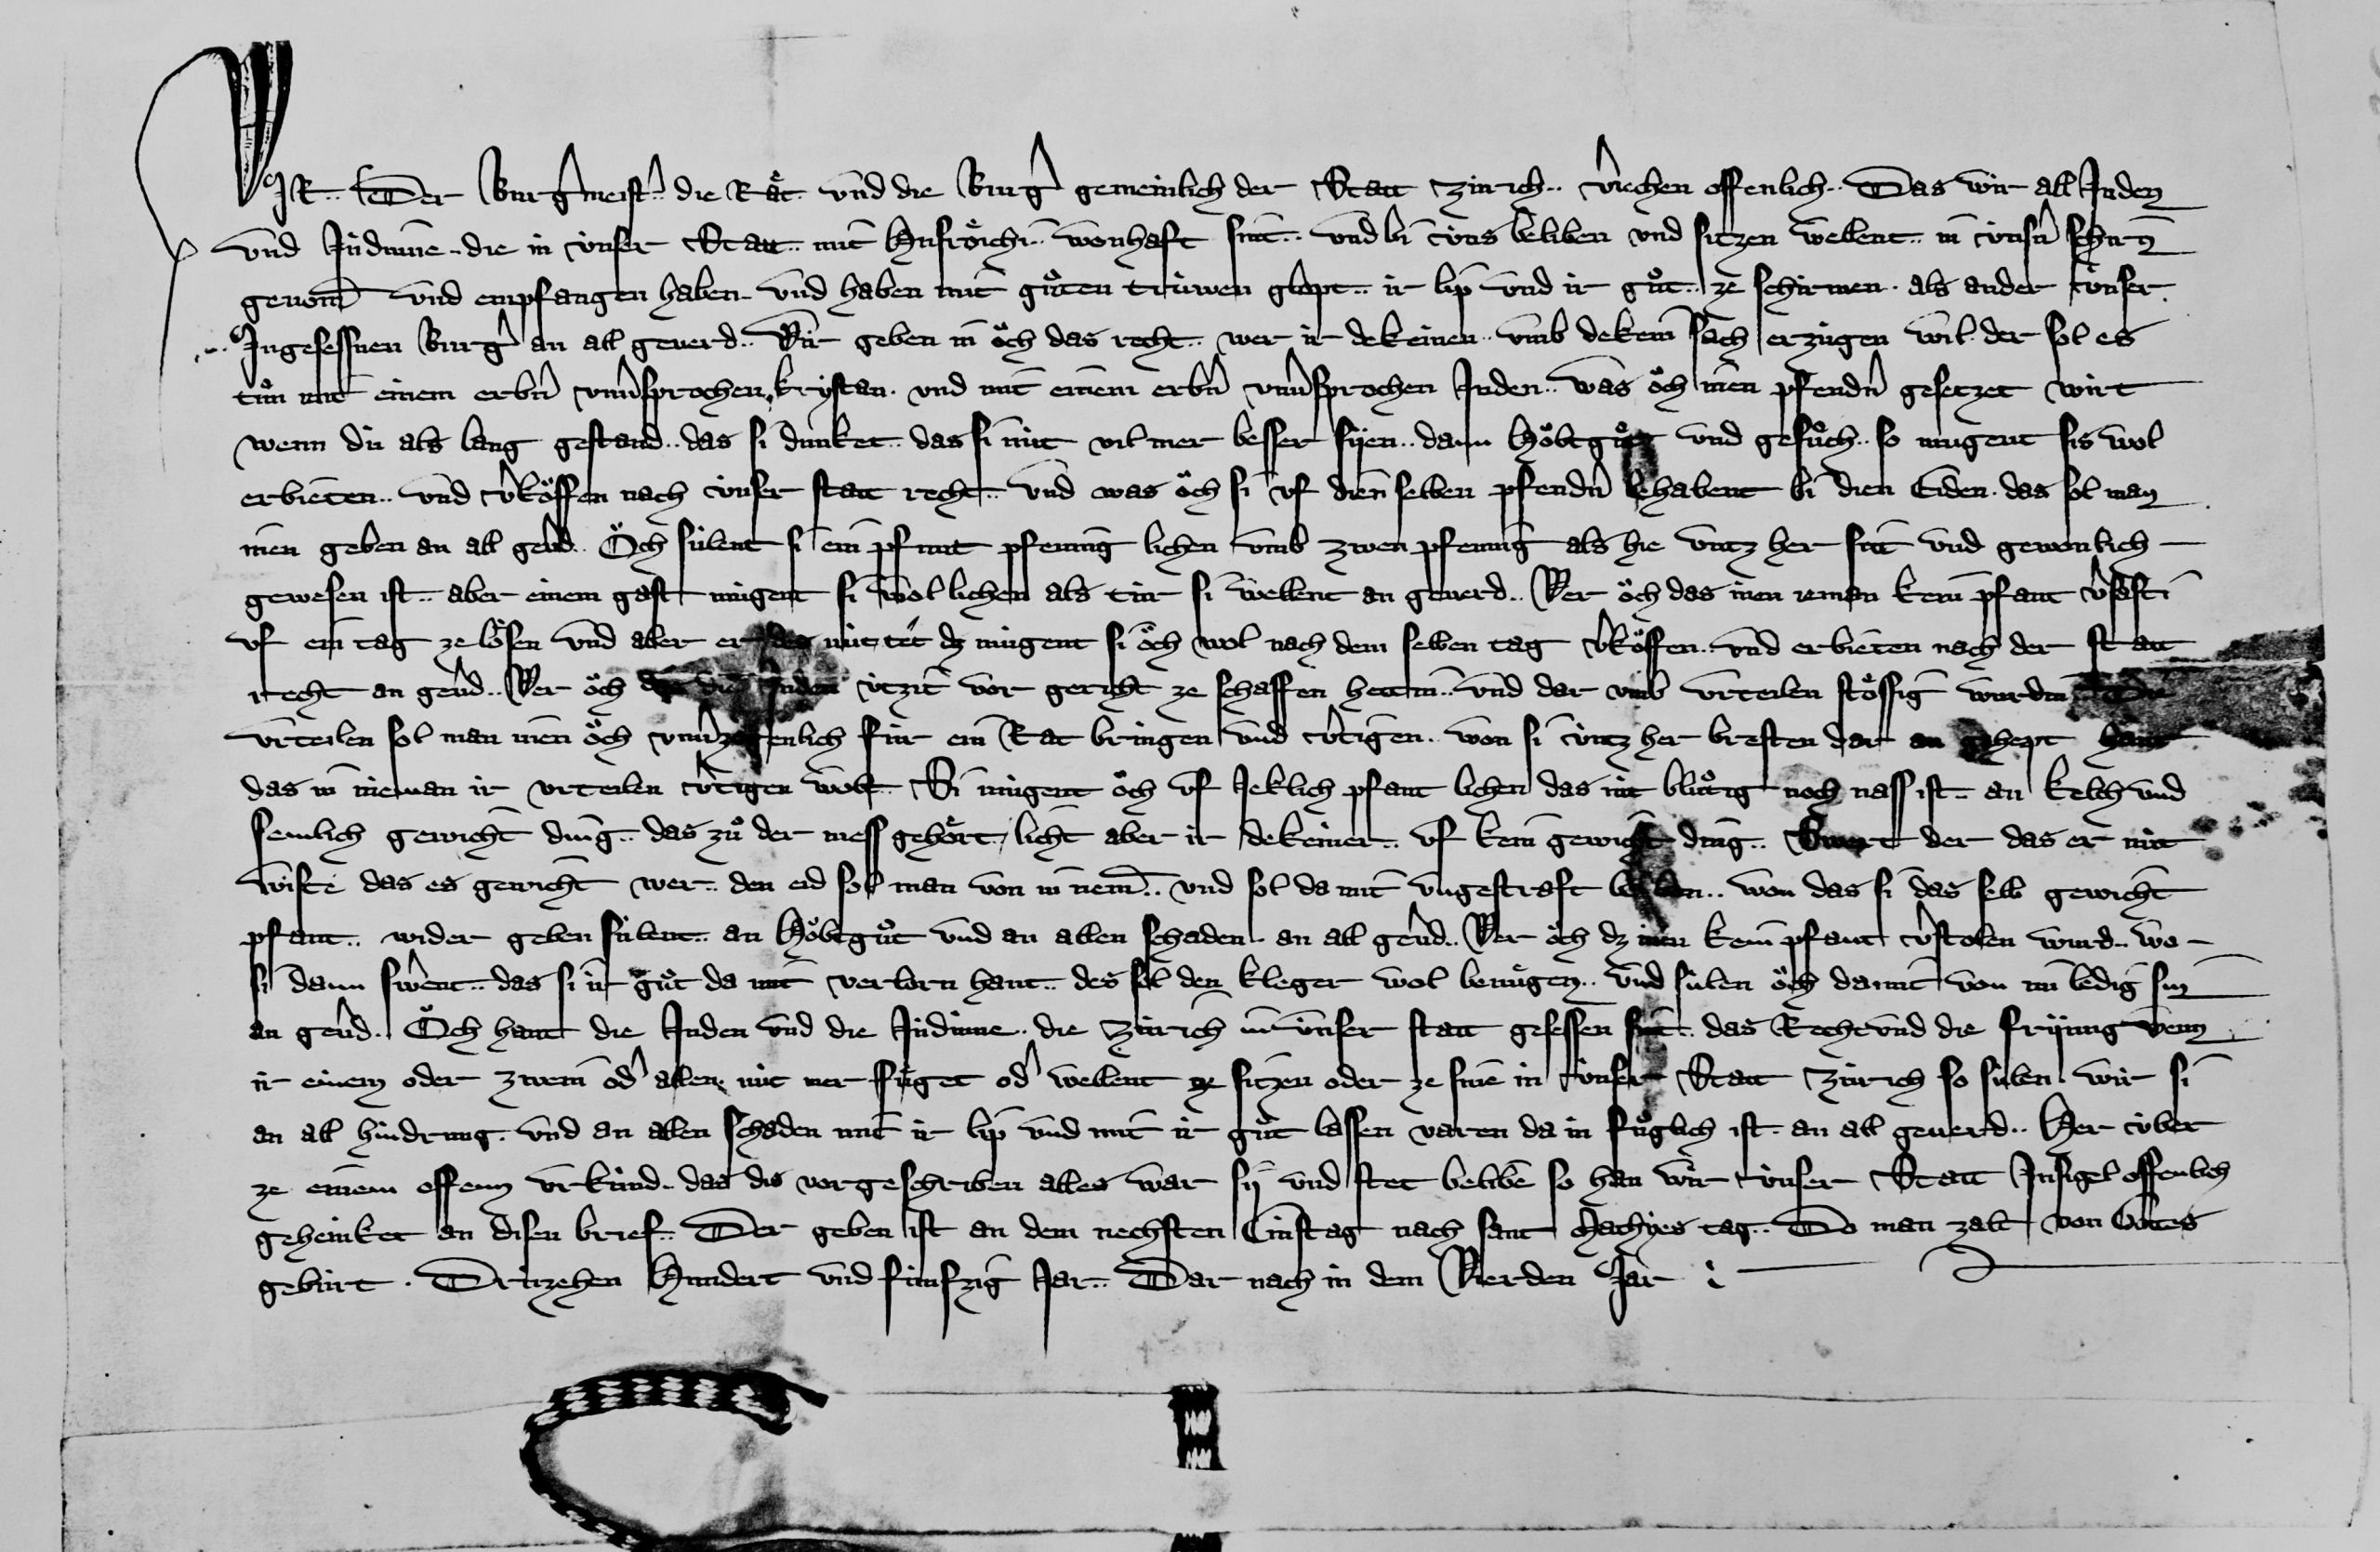 WIR.. Der Burg̾meist̾.. die Rät.. vnd die Burg̾ gemeinlich der Statt Zürich.. v̾iechen offenlich.. Das wir all Juden
vnd Judinne.. die in vnser Statt.. mit Husröichi.. wonhaft sint.. vnd bi vns beliben vnd sitzen wellent.. in vnsn̾ schirn̄
genom̄ vnd empfangen haben.. vnd haben mit guͦten trüwen glopt.. ir lip vnd ir guͦt.. ze schirmen. als ander vnser
Jngesessnen Burg̾ an all geuerd.. Wir geben in öch das recht.. wer ir dekeinen.. vmb dekein sach erzügen wil. der sol es
tuͦn mit einem erbn̾ vnu̾sprochen kristan. vnd mit einem erbn̾ vnu̾sprochen Juden.. was öch inen pfendn̾ gesetzet wirt
wenn dü als lang gestand.. das si dunket.. das si nüt vil mer besser sijen.. dann höbtguͦt vnd gesuͦch.. so mugent sis wol
erbieten.. vnd v̾köffen nach vnser statt recht.. vnd was öch si vf dien selben pfendn̾ behabent bi dien Eiden. das sol man
inen geben an all geu̾d.. Öch sülent si ein pfunt pfening lichen vmb zwen pfening als hie vntz her sitt vnd gewonlich
gewesen ist.. aber einem gast mügent si wol lichen als tür si wellent an geuerd.. Wer öch das inen ieman kein pfant v̾sasti
vf ein tag ze lösen vnd aber er des nüt tet dz mügent si öch wol nach dem selben tag v̾köffen.. vnd erbieten nach der statt
recht an geu̾d.. Wer öch die Juden ützit vor gericht ze schaffen hettin.. vnd dar vmb vrteilen stössig wurdin Die
vrteilen sol man inen öch vnu̾zogenlich für ein Rat bringen vnd v̾tigen.. won si vntz her bresten dar an gehept hant
das in nieman ir vrteilen v̾tigen wolt.. Si mügent öch vf Jeklich pfant lichen das nit bluͦtig noch nass ist.. an kelch vnd
semlich gewicht ding.. das zuͦ der mess gehört, licht aber ir dekeiner.. vf kein gewicht ding.. Swert der das er nit
wiste das es gewicht wer.. den eid sol man von in nem̄.. vnd sol da mit vngestraft beliben.. won das si das selb gewicht
pfant.. wider geben sülent.. an höbtguͦt vnd an allen schaden. an all geu̾d.. Wer öch dz inen kein pfant v̾stolen wurd.. wo
si dann swe̾nt.. das si ir guͦt da mit verlorn hant.. des sol den kleger wol benuͤgen.. vnd sülen öch damit von im ledig sin
an geu̾d.. Öch hant die Juden vnd die Judinne.. die Zürich in vnser statt gesessen sint.. das Recht vnd die friung wenn
ir einem oder zwein od̾ allen nit mer fuͤget od̾ wellent ze sitzen oder ze sinē in vnser Statt Zürich so sülen wir si
an all hindrung. vnd an allen schaden mit ir lip vnd mit ir guͦt lassen varen da in fuͤglich ist. an all geuerd.. Her vber
ze einem offenn vrkünd.. das dis vorgeschriben alles war sij vnd stet belibe so han wir vnser Statt Jnsigel offenlich
gehenket an disen brief.. Der geben ist an dem nechsten Cinstag nach sant Mathyes tag.. Do man zalt von Gottes
gebürt. Drüzehen Hundert vnd fünfzig Jar.. Dar nach in dem Vierden Jar